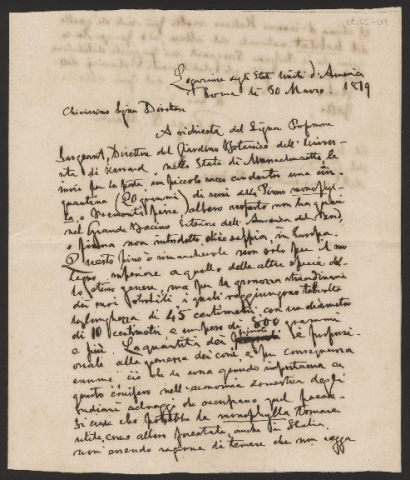 Legazione degli Stati Uniti d'America
Roma li 30 Marzo. 1879
Chiarissimo Signor Direttore
A richiesta del Signor Professore
Sargeant, Direttore del Giardino Botanico dell' Univer-
sità di Harvard, nello Stato di Massachusetts, le
invio per la posta, un piccolo sacco contenente una cin-
quantina (20 grammi) di semi della Pinus monophyl-
la, o Fremont's pine, albero scoperto non ha guari
nel Grande Bacino interiore dell' America del Nord,
e finora non introdotto ch'io sappia, in Europa.
Questo pino è rimarchevole non solo per il suo
legno, superiore a quello delle altre specie del-
lo stesso genere, ma per la grossezza straordinaria
dei suoi strobili, i quali raggiungono talvolta
la lunghezza di 45 centimetri con un diametro
di 10 centimetri e un peso di 800 grammi
e più. La quantità dei pinoli è proporzi-
onale alla grossezza dei coni, e per conseguenza
enorme, ciò che dà una grande importanza a
questo conifero nell' economia domestica degli
indiani selvaggi che occupano quel paese.
Si crede che potrebbe la monophylla tornare
utile, come albero forestale, anche in Italia,
non essendo ragione di temere che non regga